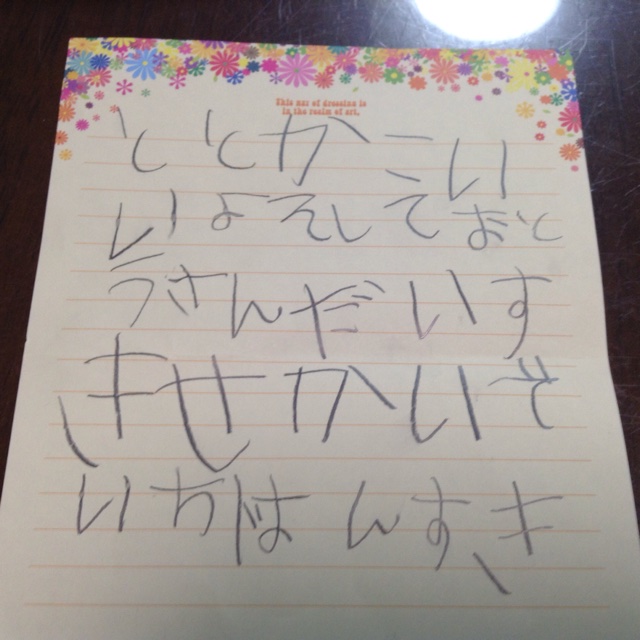 This nar of dression is
in the realm of art.
ととかこい
いよそしておと
うさんだいす
きせかいで
いちばんすき